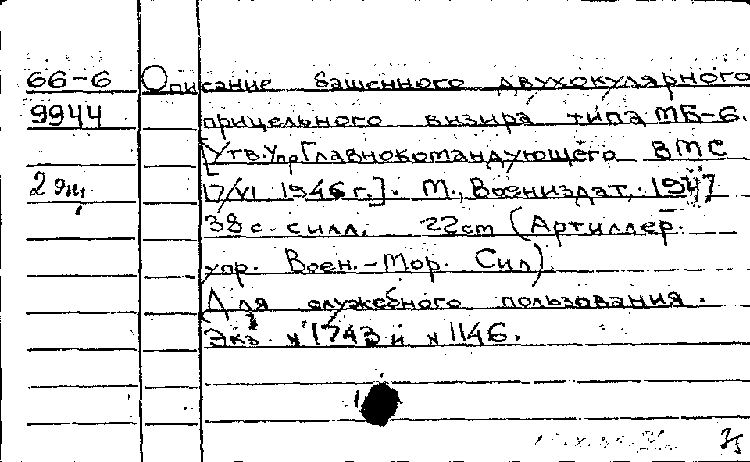 66-6 Описание башенного двухокулярного
9944 прицельного визира типа МБ-6.
[Утв. Упр Главнокомандующего ВМС
2 экз 17/VI 1946 г.]. М., Воениздат, 1947
38 с. с илл. 22 см (Артиллер.
упр. Воен.-Мор. Сил).
Для служебного пользования.
Экз. № 1743 и № 1146.